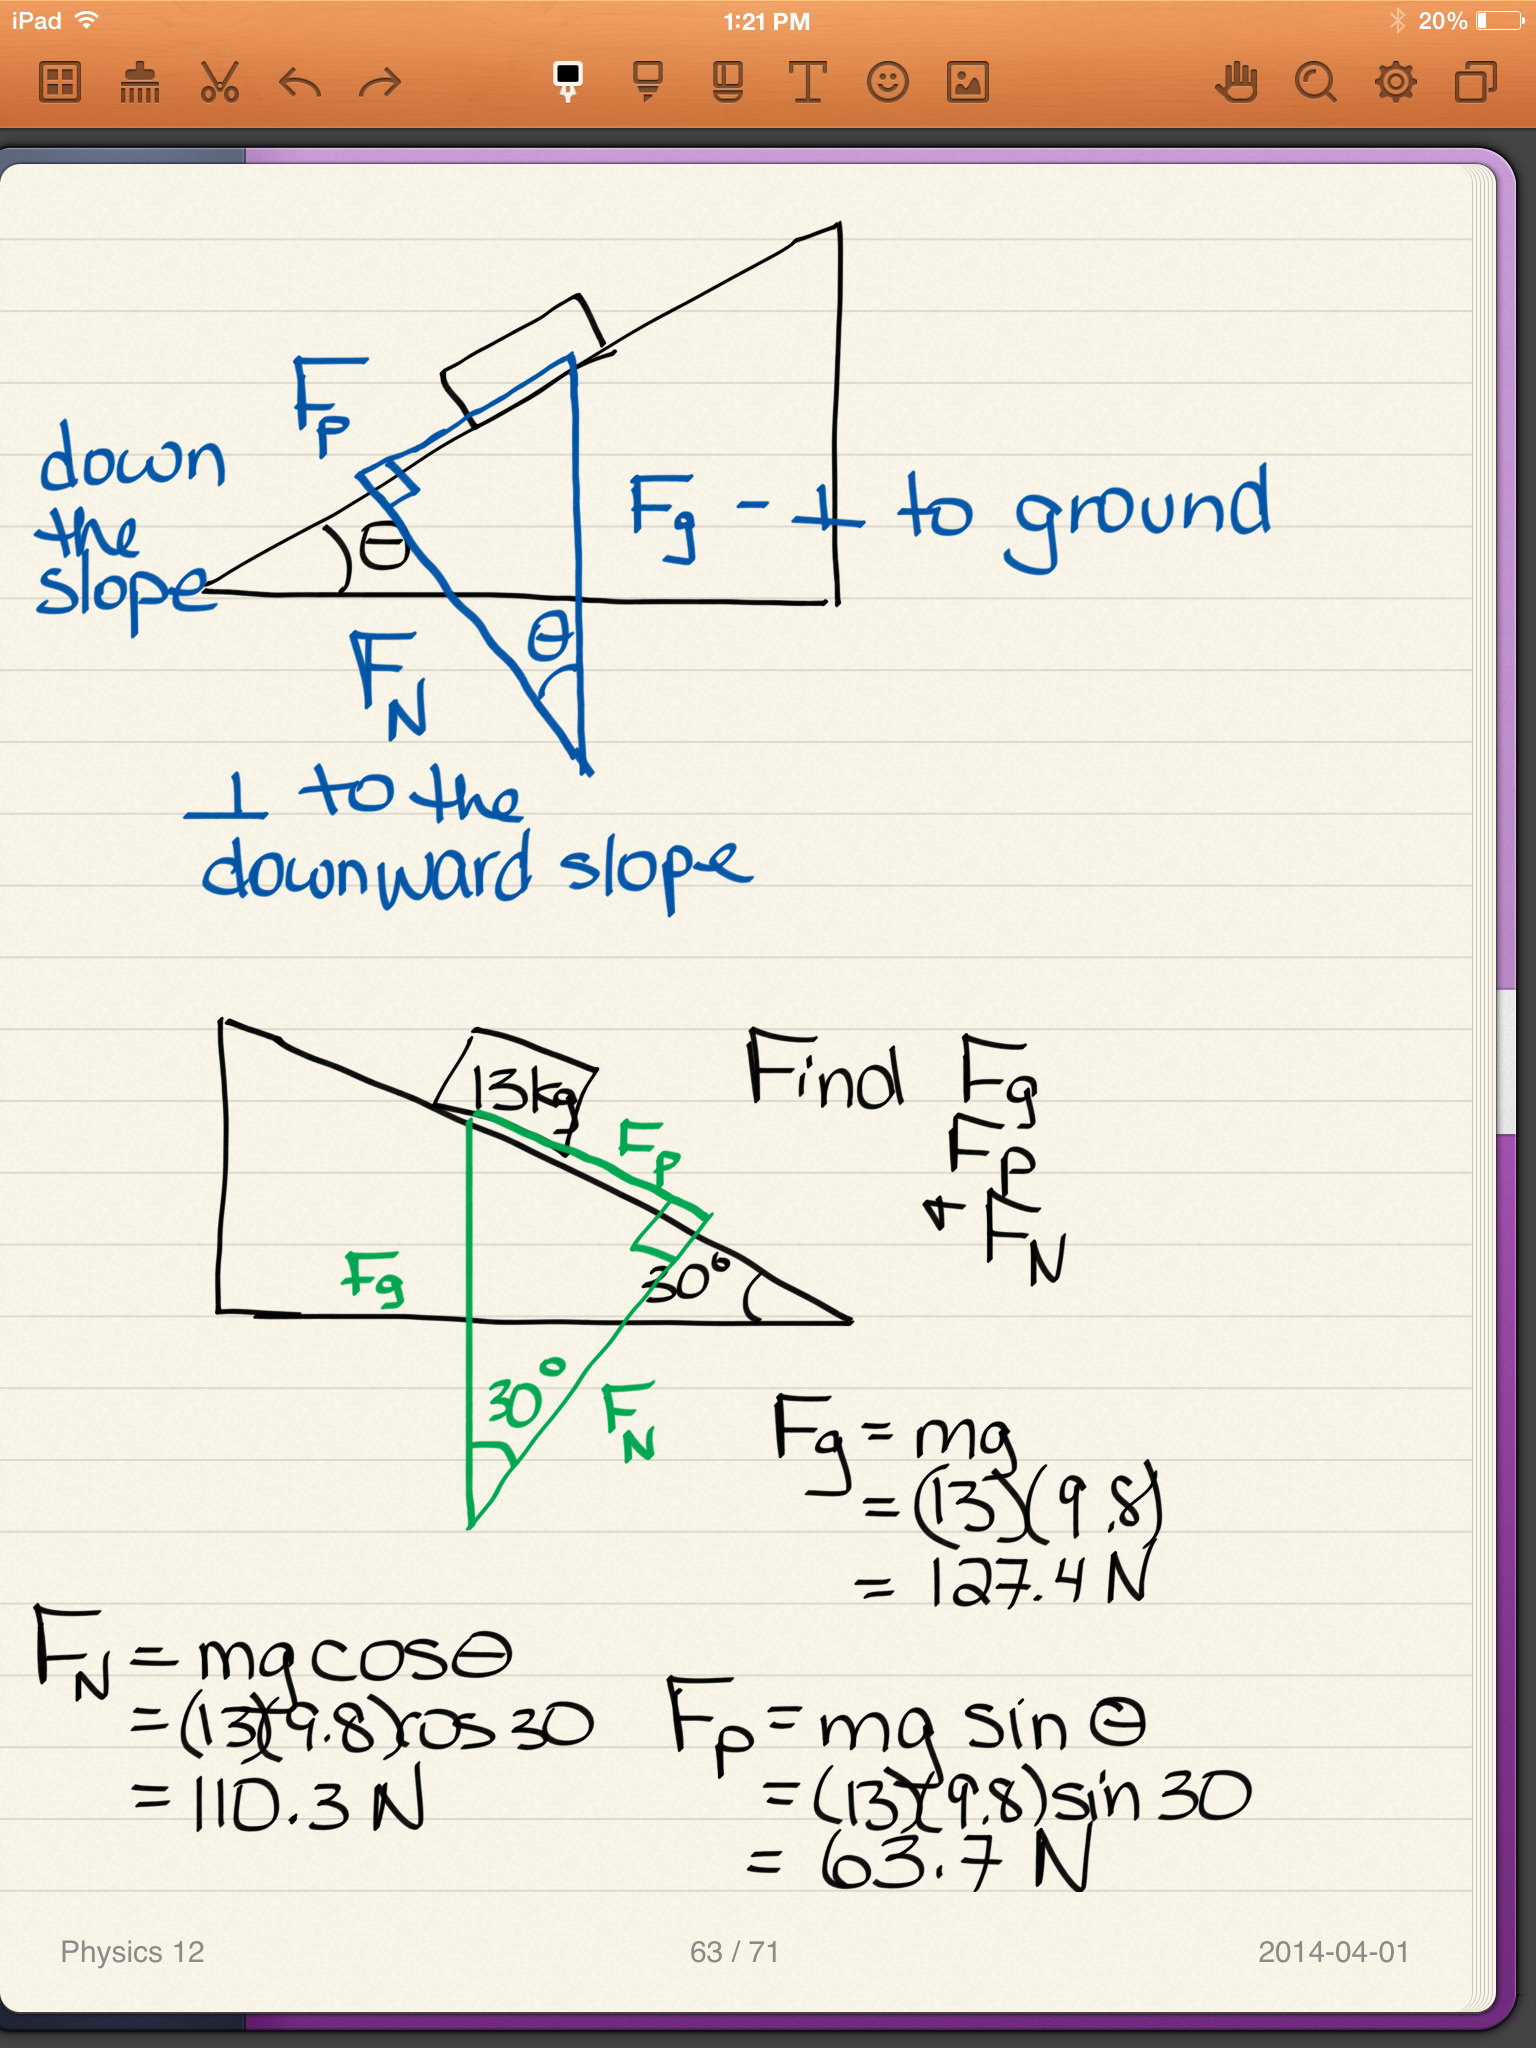 iPad 1:21 PM 20%
F_p
down
the
slope
θ
F_g - ⊥ to ground
θ
F_N
⊥ to the
downward slope
13kg
F_p
F_g
30°
30°
F_N
Find F_g
F_p
+ F_N
F_g = mg
= (13)(9.8)
= 127.4 N
F_N = mg cosθ
= (13)(9.8)cos 30
= 110.3 N
F_p = mg sin θ
= (13)(9.8)sin 30
= 63.7 N
Physics 12 63 / 71 2014-04-01